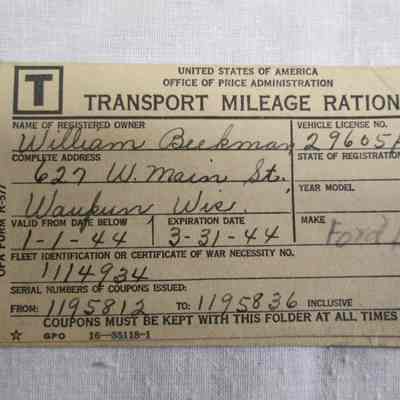 UNITED STATES OF AMERICA
OFFICE OF PRICE ADMINISTRATION
T
TRANSPORT MILEAGE RATION
NAME OF REGISTERED OWNER
VEHICLE LICENSE NO.
William Beekman
29605
COMPLETE ADDRESS
STATE OF REGISTRATION
627 W. Main St.
YEAR MODEL
Waupun Wis.
VALID FROM DATE BELOW
EXPIRATION DATE
MAKE
1-1-44
3-31-44
Ford
FLEET IDENTIFICATION OR CERTIFICATE OF WAR NECESSITY NO.
1114934
SERIAL NUMBERS OF COUPONS ISSUED:
FROM: 1195812 TO: 1195836 INCLUSIVE
COUPONS MUST BE KEPT WITH THIS FOLDER AT ALL TIMES
GPO 16—35118-1
OPA FORM R-577